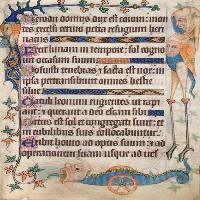 Erodii domus dux est eorum: mon
tes excelsi ceruis petra refugium
herinaciis
Fecit lunam in tempore: sol cogno
uit occasum suum
Posuisti tenebras et facta est nox: in
ipsa pertransibunt omnes bestie
silue
Catuli leonum rugientes ut rapi
ant: et querant a deo escam sibi
Ortus est sol et congregati sunt: et
in cubilibus suis collocabuntur
Exibit homo ad opus suum: et ad
operationem suam usque ad uesp